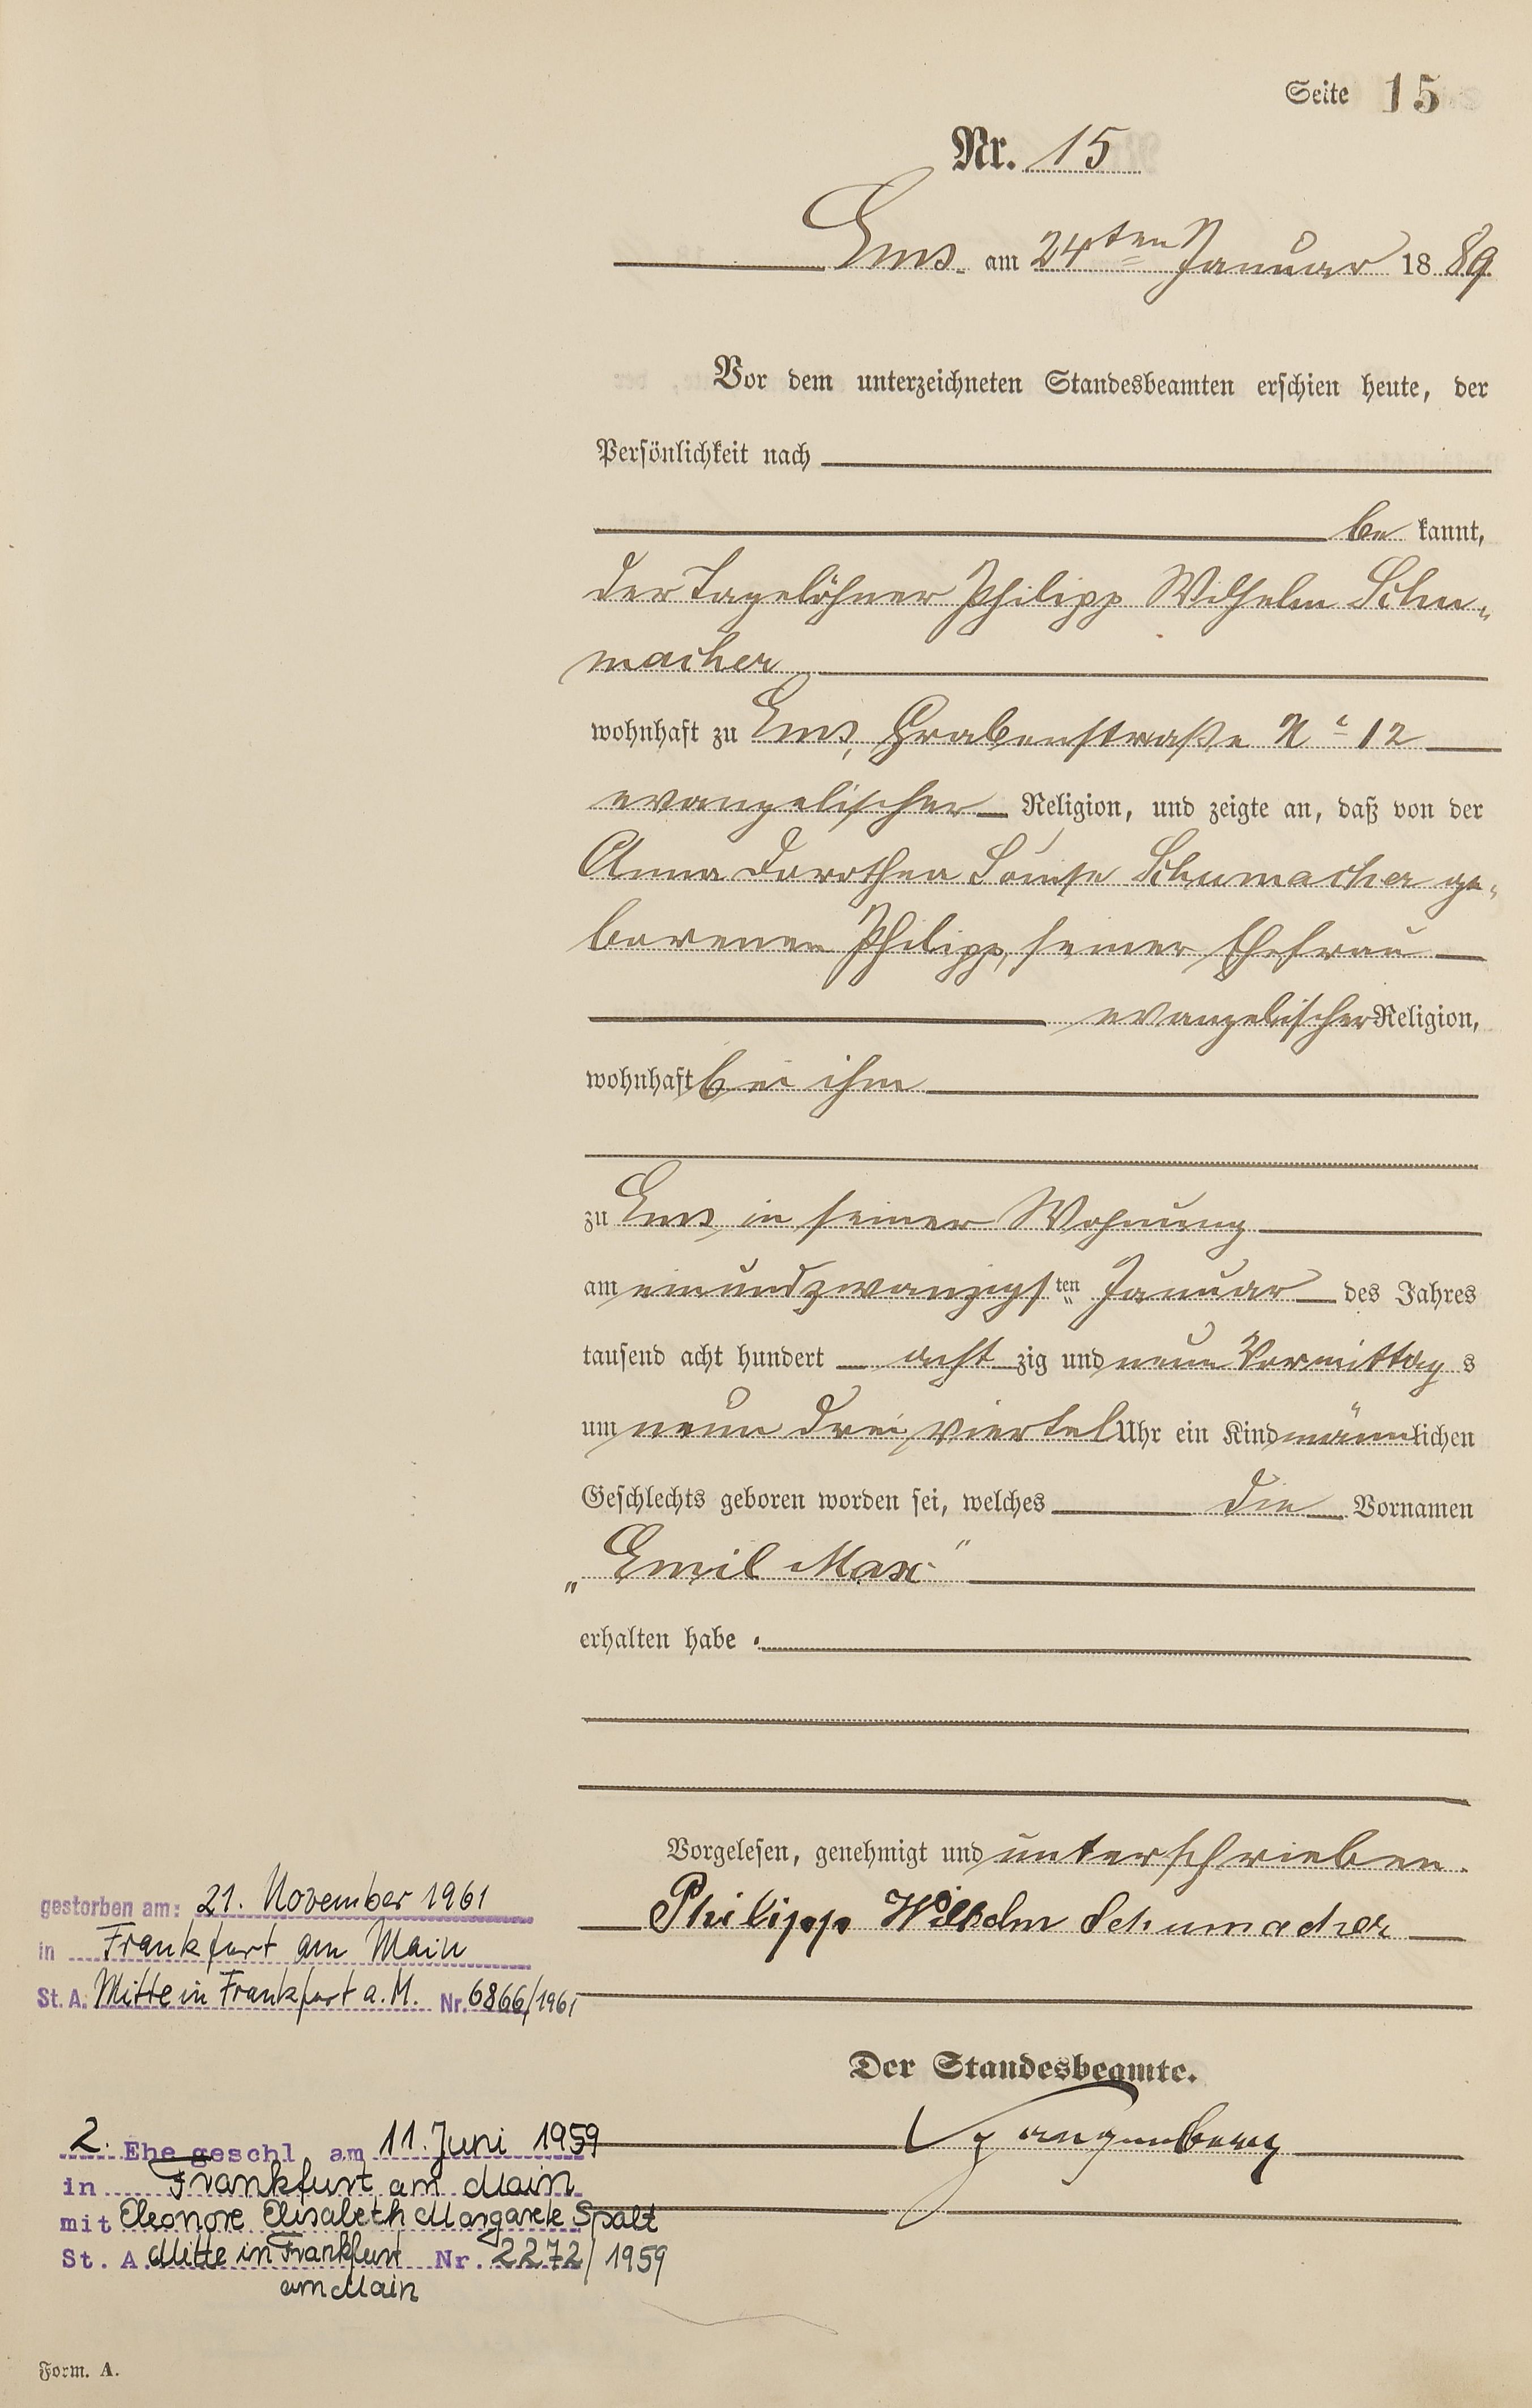 Seite 15
Nr. 15
Ems am 24ten Januar 1889
Vor dem unterzeichneten Standesbeamten erschien heute, der
Persönlichkeit nach
be kannt,
der Tagelöhner Philipp Wilhelm Schu-
macher
wohnhaft zu Ems, Grabenstraße No 12
evangelischer Religion, und zeigte an, daß von der
Anna Dorothea Louise Schumacher ge-
borenen Philipp, seiner Ehefrau
evangelischer Religion,
wohnhaft bei ihm
zu Ems in seiner Wohnung
am einundzwanzigsten Januar des Jahres
tausend acht hundert achtzig und neun Vormittags
um neun drei viertel Uhr ein Kind männlichen
Geschlechts geboren worden sei, welches die Vornamen
„Emil Max"
erhalten habe.
Vorgelesen, genehmigt und unterschrieben.
Philipp Wilhelm Schumacher
Der Standesbeamte.
gestorben am: 21. November 1961
in Frankfurt am Main
St. A. Mitte in Frankfurt a. M. Nr. 6866/1961
2. Ehe geschl am 11. Juni 1959
in Frankfurt am Main
mit Eleonore Elisabeth Margarete Spalt
St. A. Mitte in Frankfurt Nr. 2272/1959
am Main
Form. A.